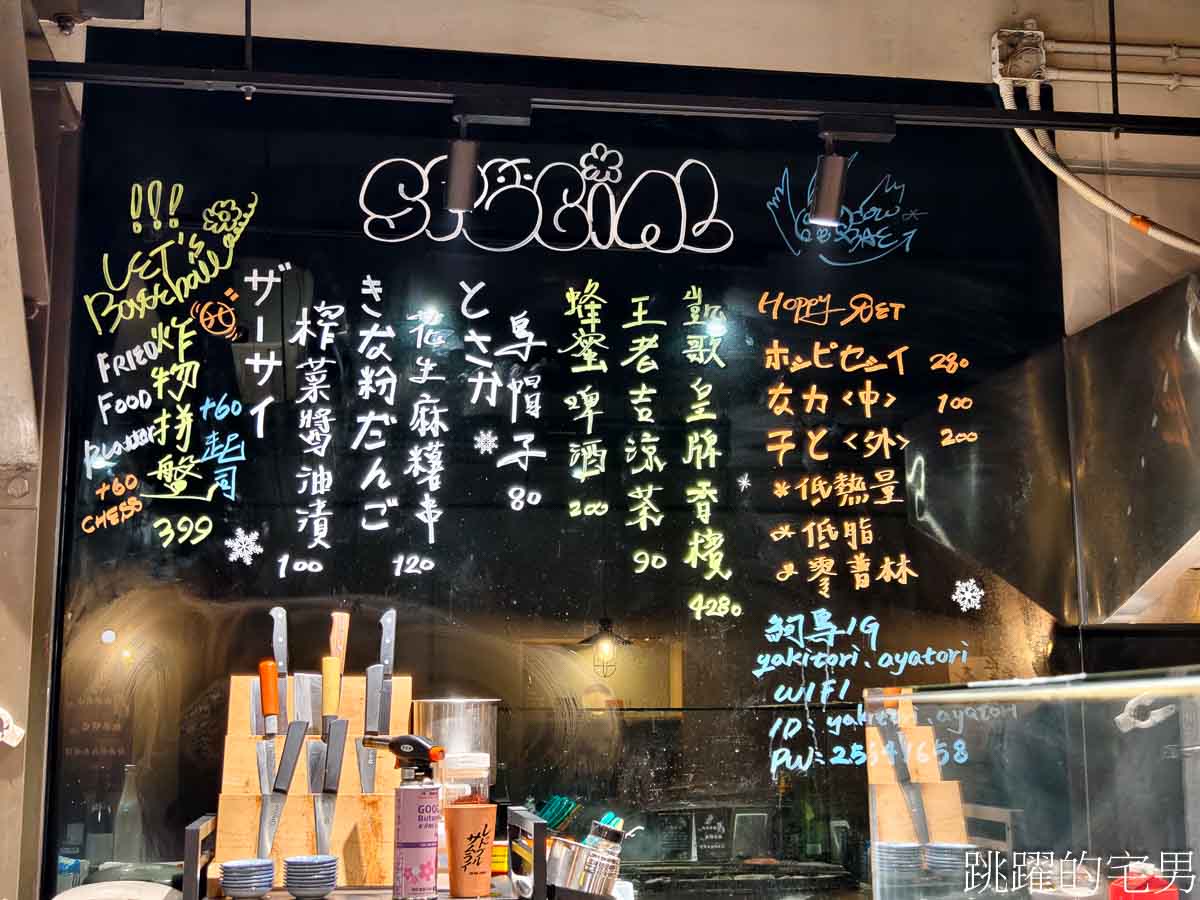 SPECIAL
!!! LET'S
Baseball
FRIED
FOOD
PLATTER
炸物拼盤
399
+60
起司
+60
CHESS
ザーサイ
榨菜醬油漬
100
きな粉だんご
花生麻糬串
120
とさか
鳥帽子
80
蜂蜜啤酒
200
王老吉涼茶
90
凱歌皇牌香檳
4280
Hoppy SET
ホッピセット 280
なカ<中> 100
干と<外> 200
*低熱量
*低脂
*零普林
鳥IG
yakitori.ayatori
WIFI
ID: yakitori.ayatori
GOOD
レッドブル
サムライ
跳躍的宅男